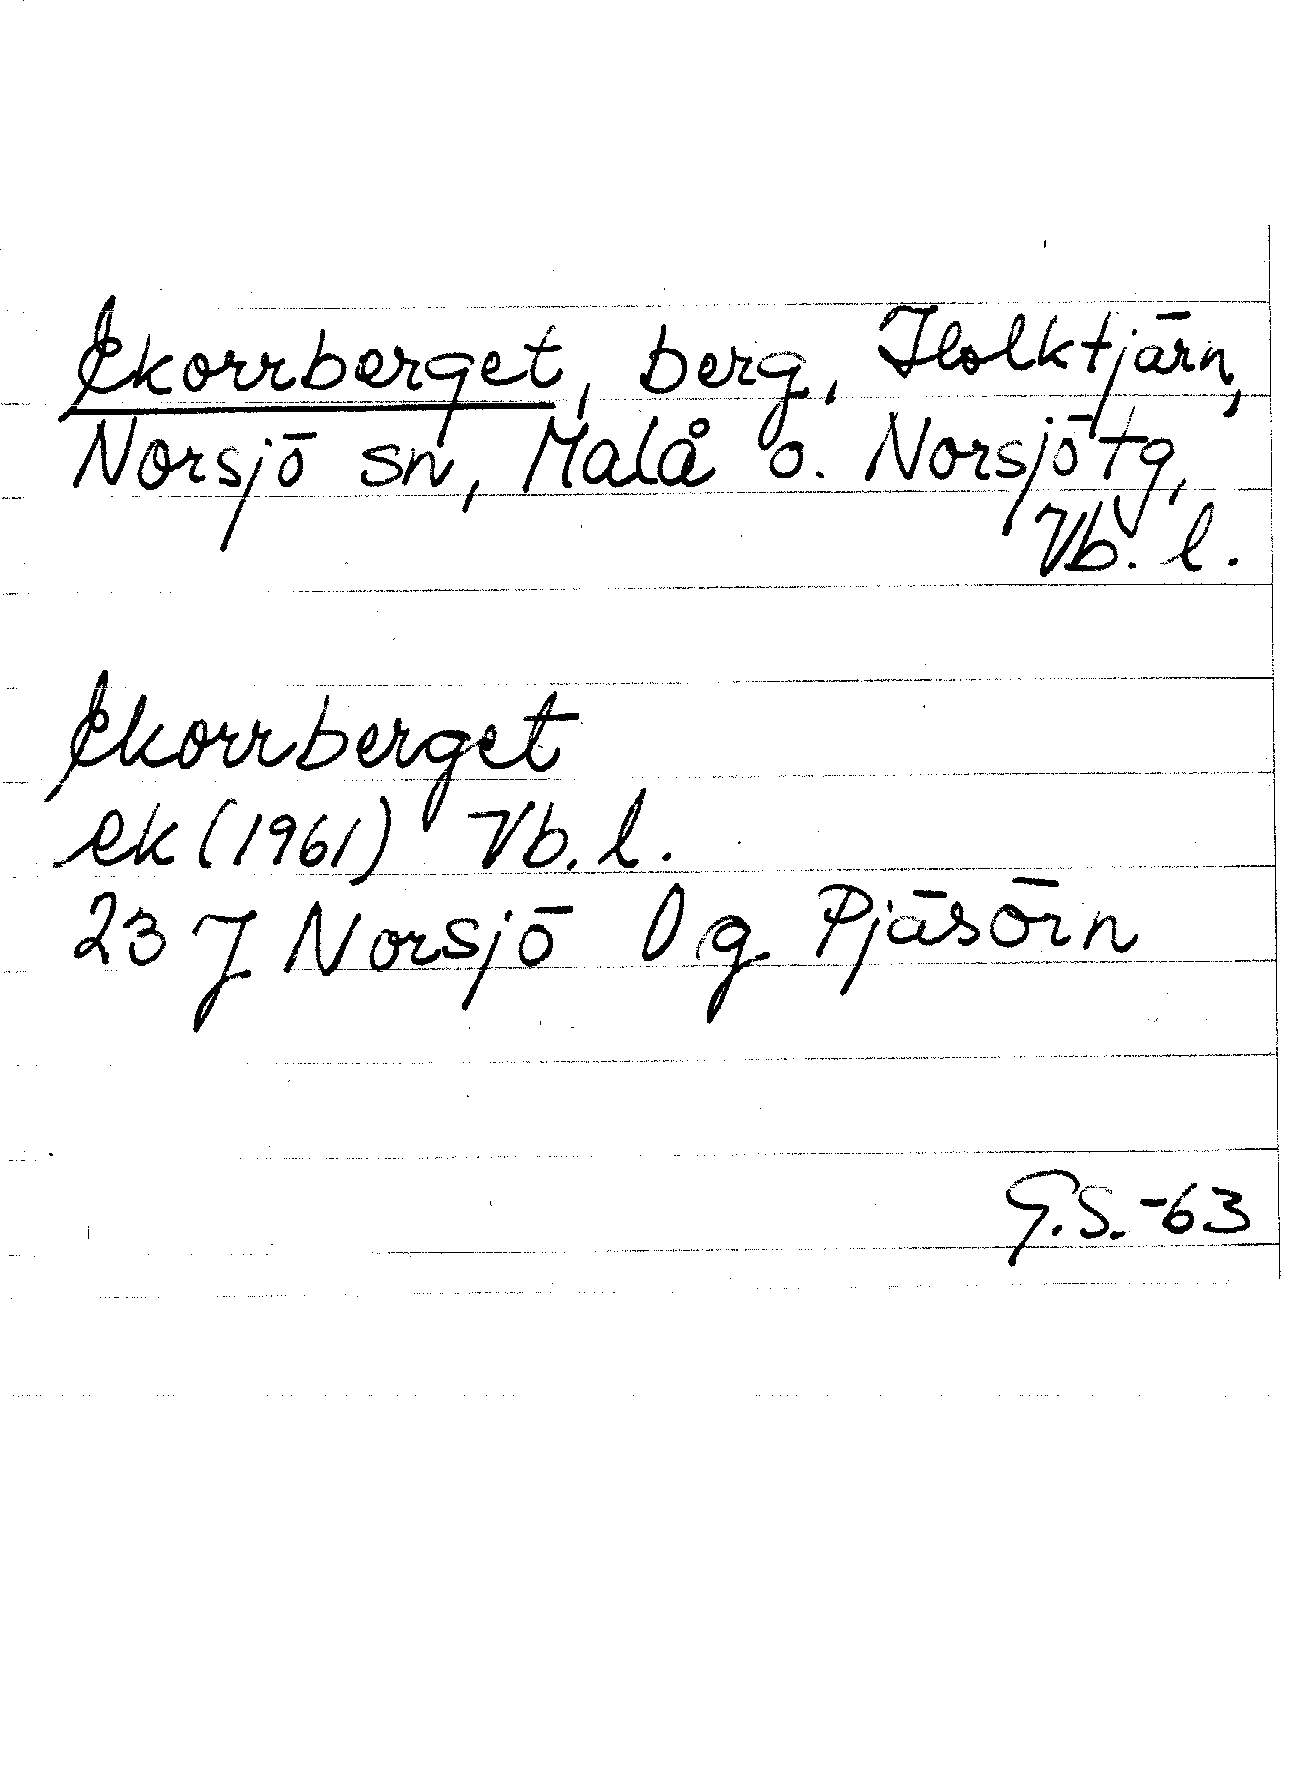 Ekorrberget, berg, Holktjärn,
Norsjö sn, Malå o. Norsjö tg,
Vb. l.
Ekorrberget
ek (1961) Vb. l.
23 J Norsjö 0 g Pjäsörn
G.S. -63